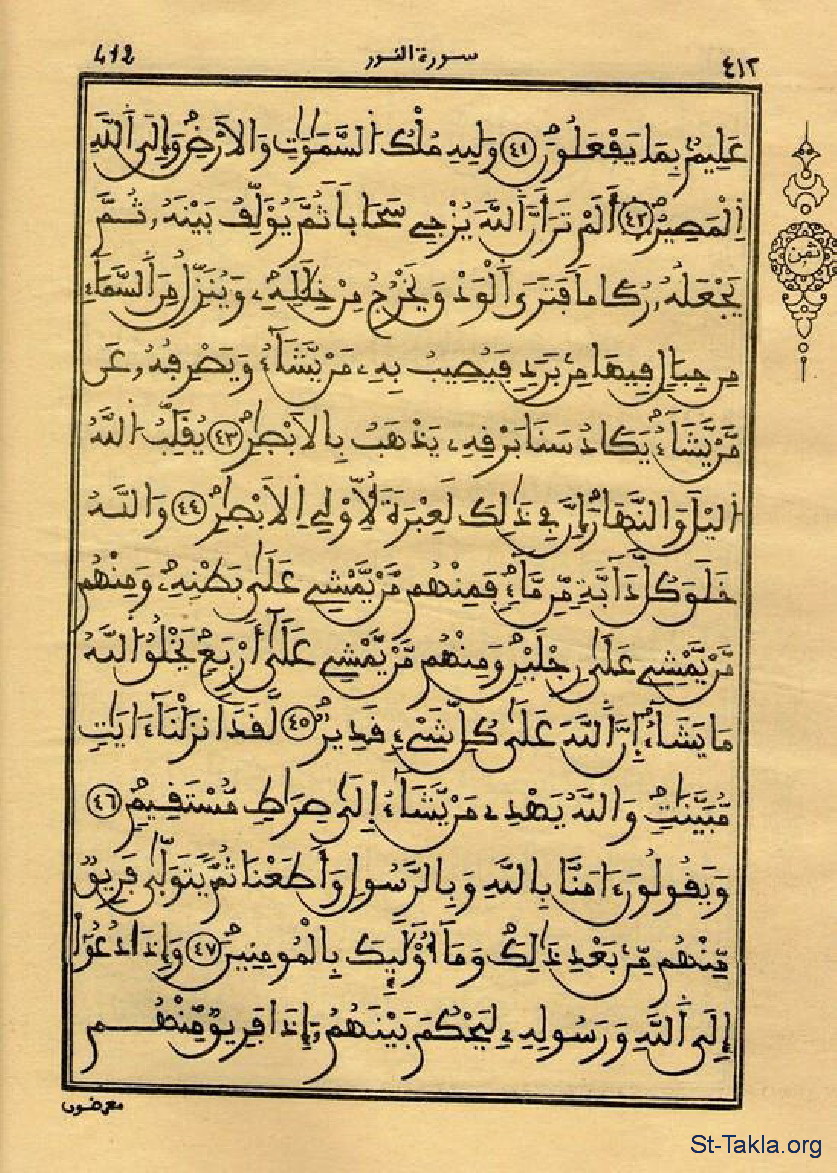 412 سورة النور ٤١٢
عَلِيمٌۢ بِمَا يَفْعَلُونَۖ ٤١ وَلِلهِ مُلْكُ اُ۬لسَّمَٰوَٰتِ وَالَارْضِۖ وَإِلَي اَ۬للَّهِ
اِ۬لْمَصِيرُۖ ٤٢ أَلَمْ تَرَ أَنَّ اَ۬للَّهَ يُزْجِے سَحَاباٗ ثُمَّ يُؤَلِّفُ بَيْنَهُۥ ثُمَّ
ثمن
يَجْعَلُهُۥ رُكَاماٗ فَتَرَي اَ۬لْوَدْقَ يَخْرُجُ مِنْ خِلَٰلِهِۦ وَيُنَزِّلُ مِنَ اَ۬لسَّمَآءِ
مِن جِبَالٖ فِيهَا مِنۢ بَرَدٖ فَيُصِيبُ بِهِۦ مَنْ يَّشَآءُ وَيَصْرِفُهُۥ عَن
مَّنْ يَّشَآءُۖ يَكَادُ سَنَا بَرْقِهِۦ يَذْهَبُ بِالَابْصٰ۪رِۖ ٤٣ يُقَلِّبُ اُ۬للَّهُ
اُ۬ليْلَ وَالنَّهَارَۖ إِنَّ فِے ذَٰلِكَ لَعِبْرَةٗ لِّأُوْلِے اِ۬لَابْصٰ۪رِۖ ٤٤ وَاللَّهُ
خَلَقَ كُلَّ دَآبَّةٖ مِّن مَّآءٖۖ فَمِنْهُم مَّنْ يَّمْشِے عَلَيٰ بَطْنِهِۦ وَمِنْهُم
مَّنْ يَّمْشِے عَلَيٰ رِجْلَيْنِ وَمِنْهُم مَّنْ يَّمْشِے عَلَيٰٓ أَرْبَعٖۖ يَخْلُقُ اُ۬للَّهُ
مَا يَشَآءُۖ اِنَّ اَ۬للَّهَ عَلَيٰ كُلِّ شَےْءٖ قَدِيرٞۖ ٤٥ لَّقَدَ اَنزَلْنَآ ءَايَٰتٖ
مُّبَيَّنَٰتٖۖ وَاللَّهُ يَهْدِے مَنْ يَّشَآءُ اِلَيٰ صِرَٰطٖ مُّسْتَقِيمٖۖ ٤٦
وَيَقُولُونَ ءَامَنَّا بِاللَّهِ وَبِالرَّسُولِ وَأَطَعْنَا ثُمَّ يَتَوَلَّيٰ فَرِيقٞ
مِّنْهُم مِّنۢ بَعْدِ ذَٰلِكَۖ وَمَآ أُوْلَٰٓئِكَ بِالْمُومِنِينَۖ ٤٧ وَإِذَا دُعُوٓاْ
إِلَي اَ۬للَّهِ وَرَسُولِهِۦ لِيَحْكُمَ بَيْنَهُمُۥٓ إِذَا فَرِيقٞ مِّنْهُم
معرضون
St-Takla.org